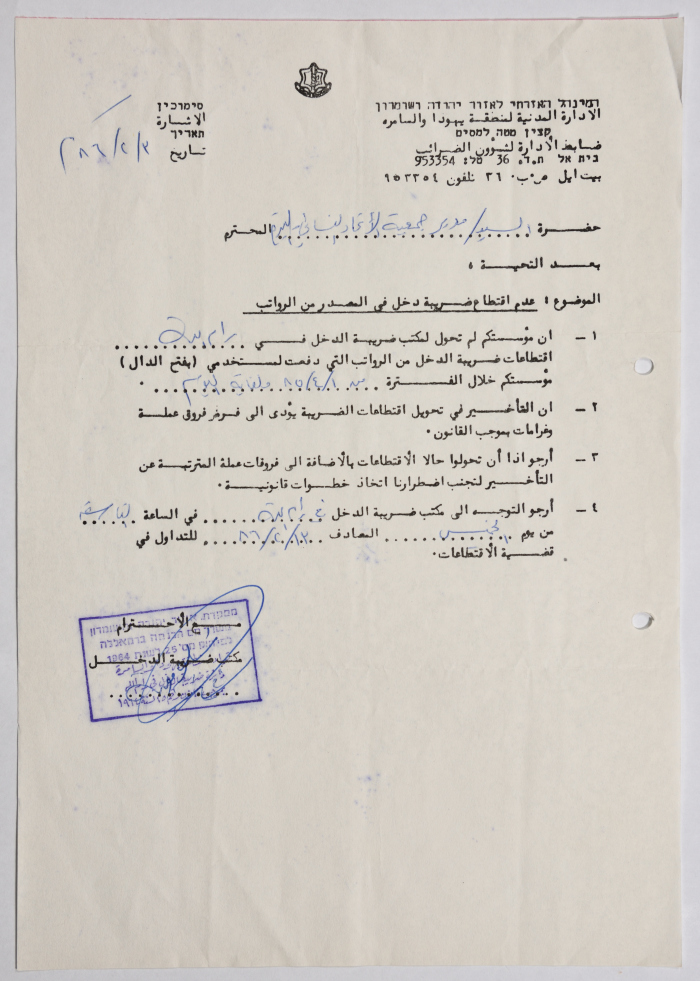 המינהל האזרחי לאזור יהודה ושומרון
الادارة المدنية لمنطقة يهودا والسامره
קצין מטה למסים
ضابط الادارة لشؤون الضرائب
בית אל ת.ד. 36 טל: 953354
بيت ايل ص.ب. ٣٦ تلفون ٩٥٣٣٥٤
סימוכין
الاشارة
תאריך
تاريخ ٨٦/٢/٣
حضرة السيد/ مدير جمعية الاتحاد النسائي المحترم
بعد التحية ،
الموضوع : عدم اقتطاع ضريبة دخل في المصدر من الرواتب
١ - ان مؤستكم لم تحول لمكتب ضريبة الدخل في رام الله
اقتطاعات ضريبة الدخل من الرواتب التي دفعت لمستخدمي (بفتح الدال)
مؤستكم خلال الفترة من ٨٥/٤/١ ولغاية اليوم .
٢ - ان التأخير في تحويل اقتطاعات الضريبة يؤدى الى فرض فروق عملة
وغرامات بموجب القانون .
٣ - أرجو اذا أن تحولوا حالا الاقتطاعات بالاضافة الى فروقات عملة المترتبة عن
التأخير لتجنب اضطرارنا اتخاذ خطوات قانونية .
٤ - أرجو التوجه الى مكتب ضريبة الدخل في رام الله في الساعة التاسعة
من يوم الخميس المصادف ٨٦/٢/١٣ للتداول في
قضية الاقتطاعات .
مع الاحترام
مكتب ضريبة الدخل